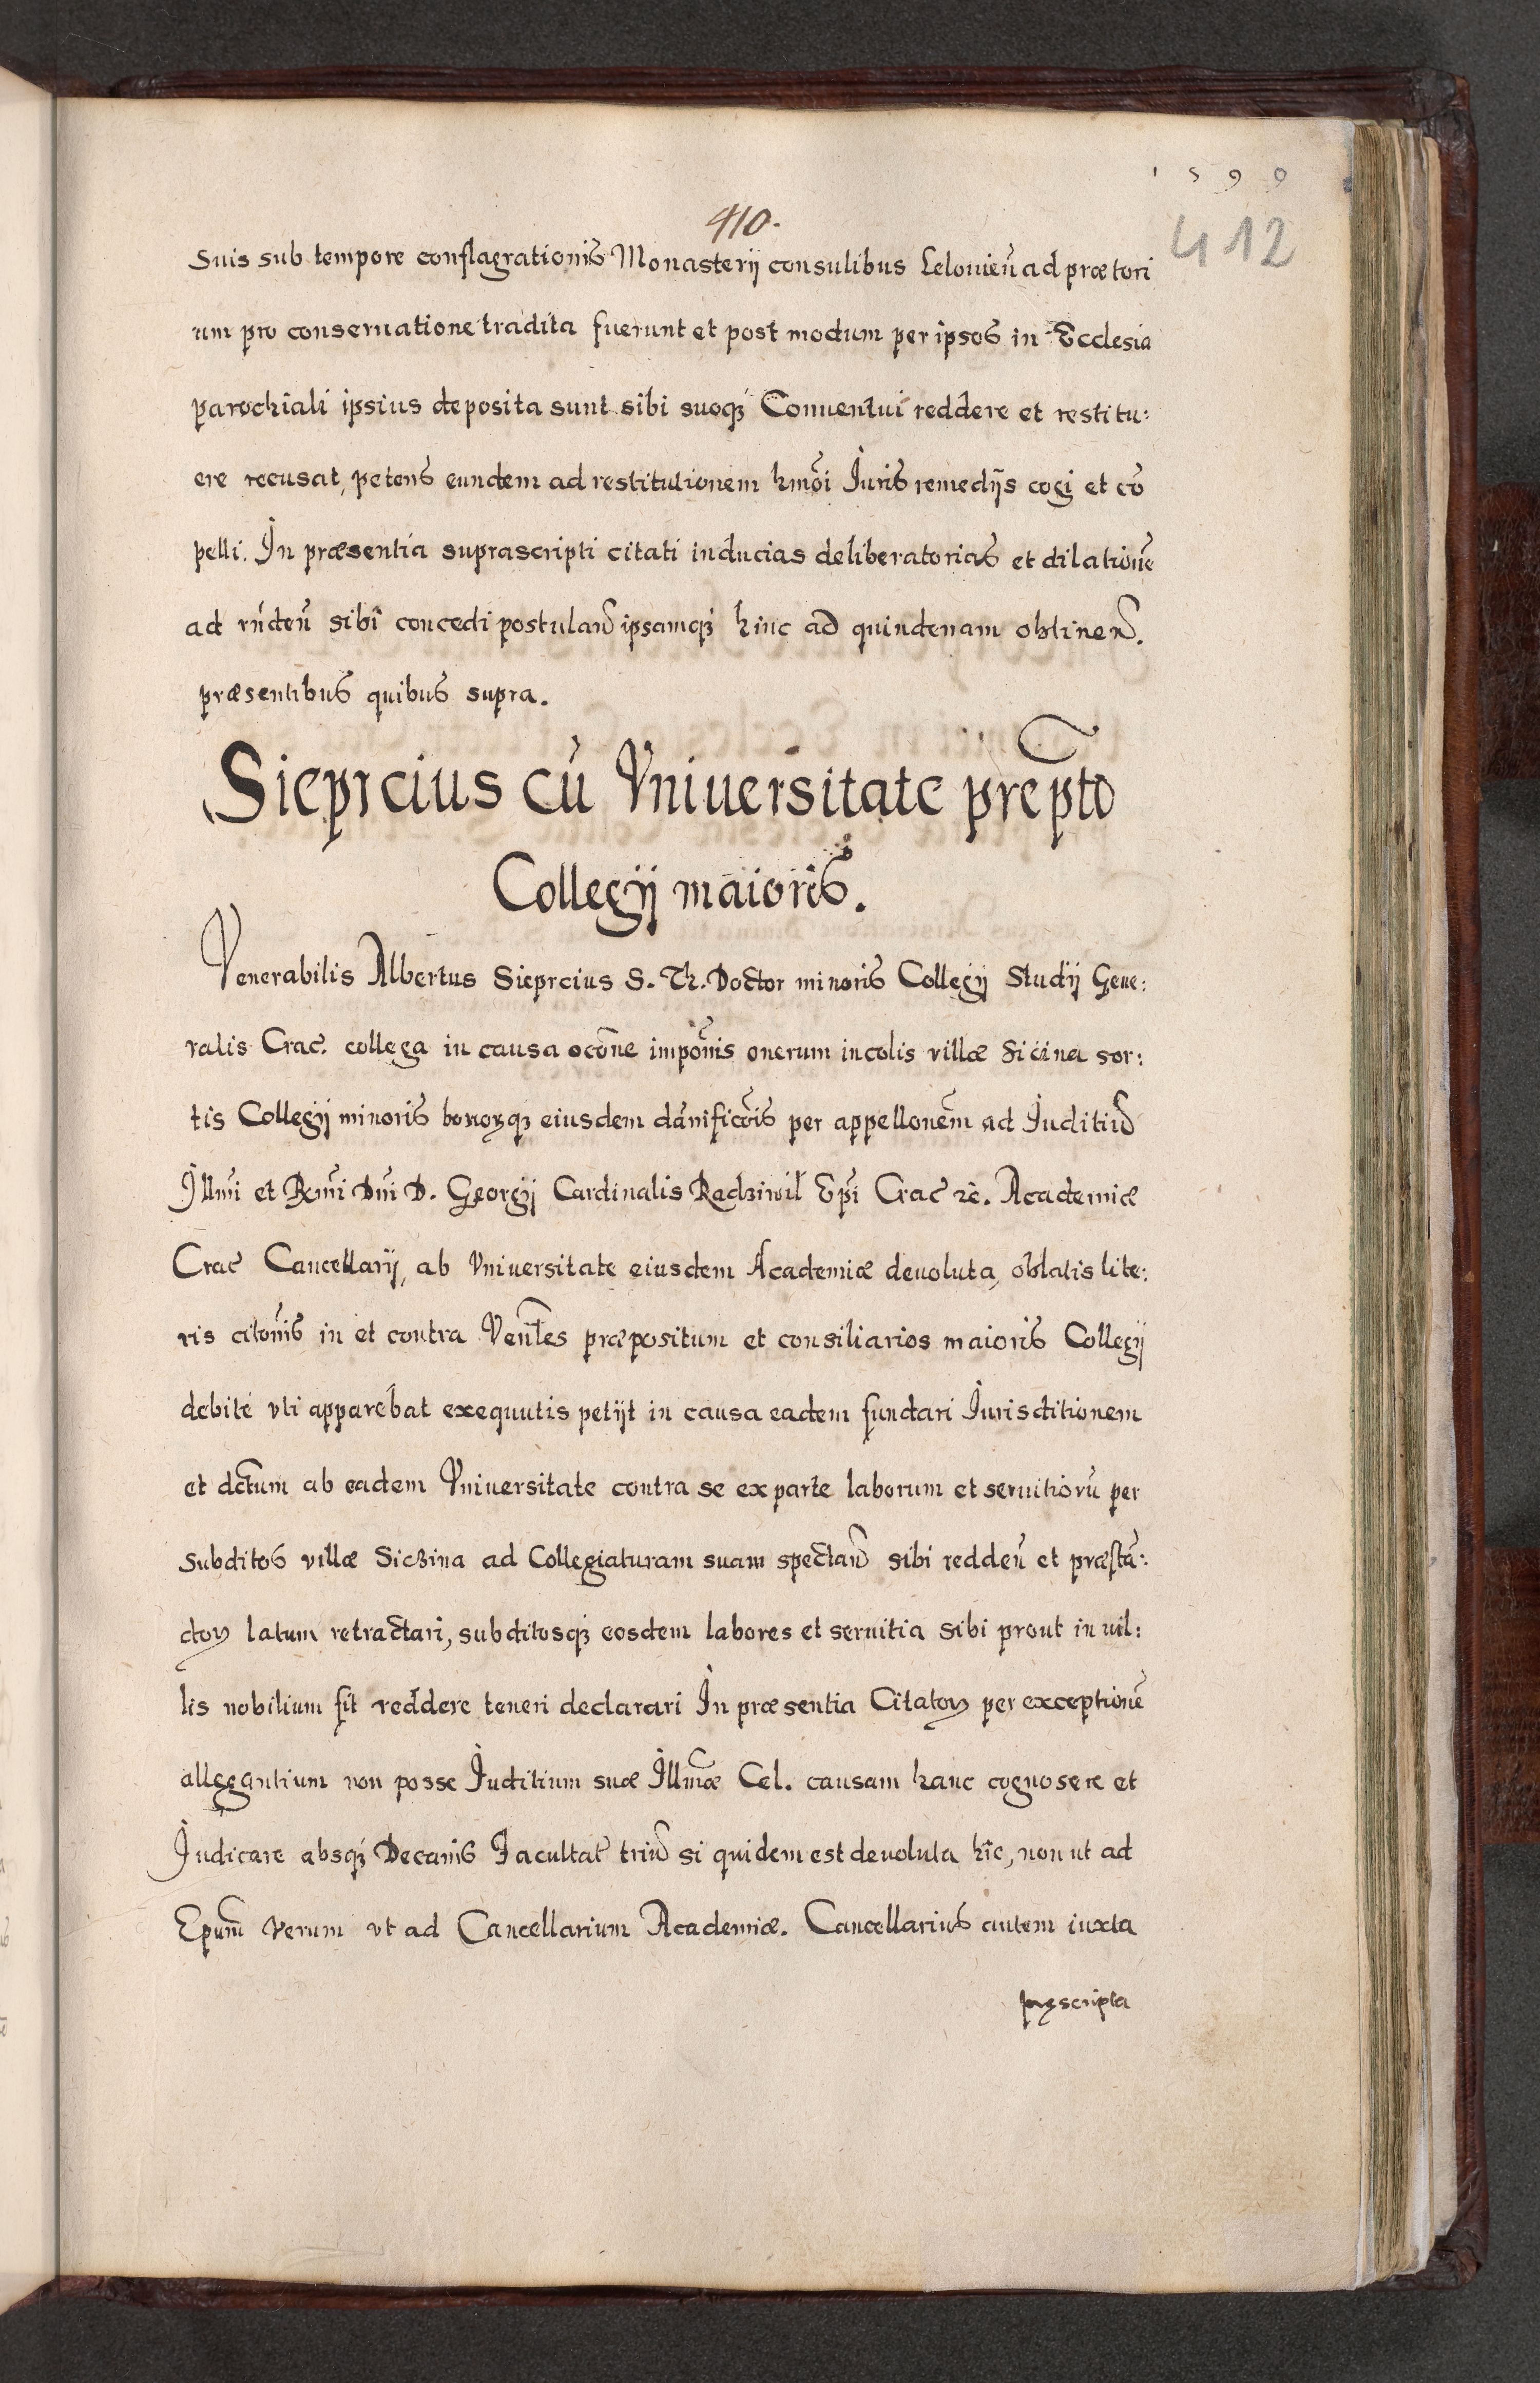 1590
410.
412
suis sub tempore conflagrationis Monasterij consulibus Lelovień ad prætori
um pro conseruatione tradita fuerunt et post modum per ipsos in Ecclesia
parochiali ipsius deposita sunt sibi suoqꝫ Conuentui reddere et restitu:
ere recusat, petens eundem ad restitutionem hmōi Iuris remedijs cogi et cō
pelli. In præsentia suprascripti citati inducias deliberatorias et dilationē
ad rńdeń sibi concedi postulań ipsamqꝫ hinc ad quindenam obtineń.
præsentibus quibus supra.
Sieprcius cū Vniuersitate prępto
Collegij maioris.
Venerabilis Albertus Sieprcius S. Th. Doctor minoris Collegij Studij Gene:
ralis Crac. collega in causa ocōne impōnis onerum incolis villæ Sicina sor:
tis Collegij minoris bonoꝝqꝫ eiusdem dānificōis per appellonēm ad Iuditiū
Illmi et Rmi Dni D. Georgij Cardinalis Radziwil Epi Crac ꝛc. Academiæ
Crac Cancellarij, ab Vniuersitate eiusdem Academiæ deuoluta, oblatis lite:
ris citōnis in et contra Venles præpositum et consiliarios maioris Collegij
debite vti apparebat exequutis petijt in causa eadem fundari Iurisditionem
et dctum ab eadem Vniuersitate contra se ex parte laborum et seruitiorū per
subditos villæ Siczina ad Collegiaturam suam spectań sibi reddeń et præstā:
doꝝ latum retractari, subditosqꝫ eosdem labores et seruitia sibi prout in vil:
lis nobilium fit reddere teneri declarari In præsentia Citatoꝝ per exceptionē
allegantium non posse Iuditium suæ Illmæ Cel. causam hanc cognosere et
Iudicare absqꝫ Decanis Facultat triū si quidem est deuoluta hīc, non ut ad
Epum verum vt ad Cancellarium Academiæ. Cancellarius autem iuxta
pręscripta